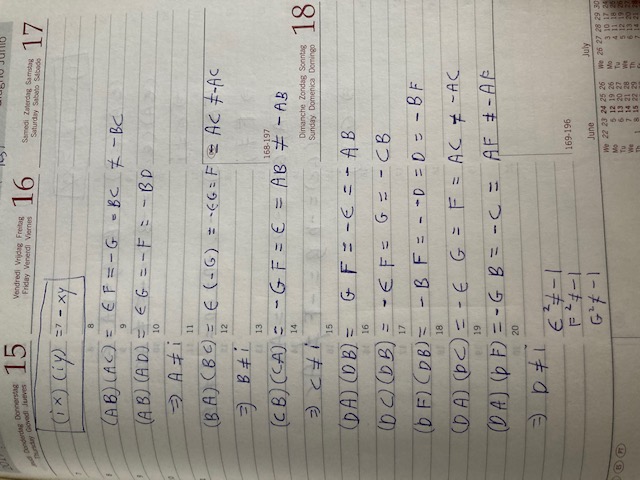 15
16
17
18
Donderdag Donnerstag
Thursday Giovedi Jueves
Vendredi Vrijdag Freitag
Friday Venerdi Viernes
Samedi Zaterdag Samstag
Saturday Sabato Sábado
Dimanche Zondag Sonntag
Sunday Domenica Domingo
(ix)(iy) = - xy
8
(AB)(AC) = EF = -G = BC ≠ -BC
9
(AB)(AD) = EG = -F = -BD
10
⇒ A ≠ i
11
(BA)(BC) = E(-G) = -EG = F = AC ≠ -AC
12
⇒ B ≠ i
13
168-197
(CB)(CA) = -GF = E = AB ≠ -AB
14
⇒ C ≠ i
15
(DA)(DB) = GF = -E = -AB
16
(DC)(DB) = -EF = G = -CB
17
(DF)(DB) = -BF = --D = D = -BF
18
(DA)(DC) = -EG = F = AC ≠ -AC
19
(DA)(DF) = -GB = -C = AF ≠ -AF
20
⇒ D ≠ i
E² ≠ -1
F² ≠ -1
G² ≠ -1
169-196
June
July
We 22 23 24 25 26
We 26 27 28 29 30